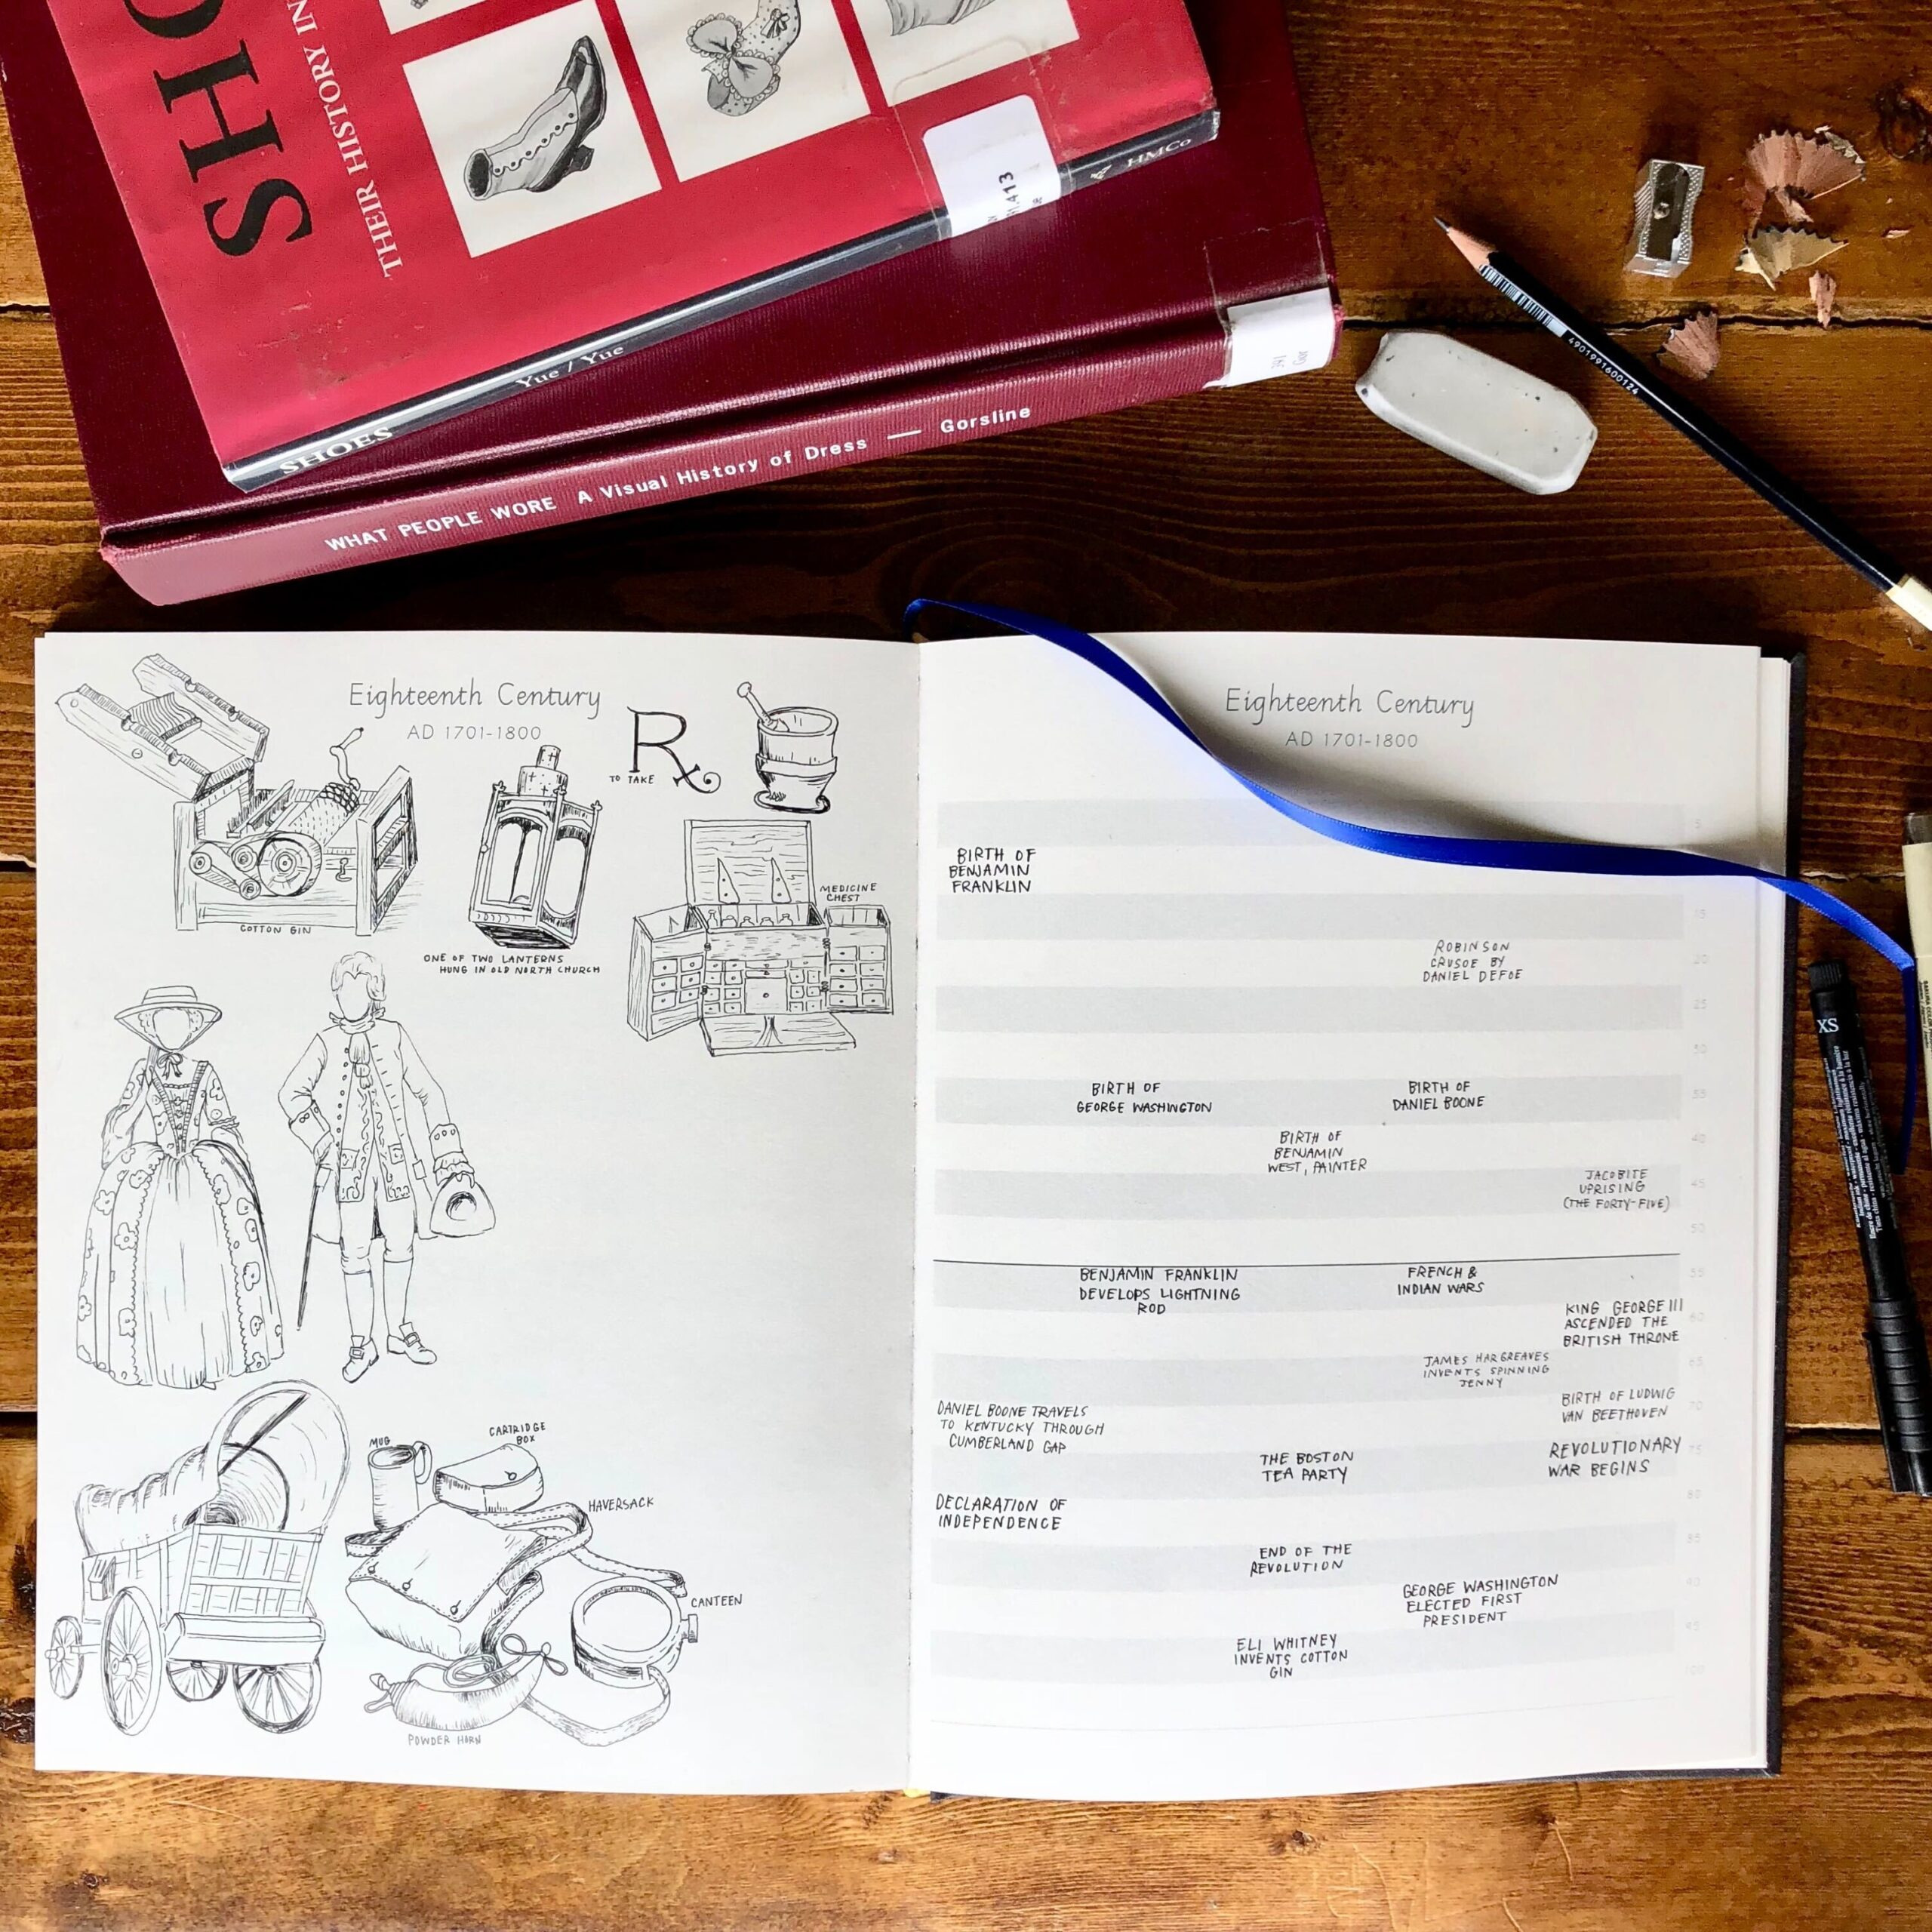 SHO
THEIR HISTORY IN
.413
HMCo
Yue / Yue
SHOES
391
Gor
WHAT PEOPLE WORE A Visual History of Dress — Gorsline
4901991600124
Eighteenth Century
AD 1701-1800
Rx
TO TAKE
COTTON GIN
ONE OF TWO LANTERNS
HUNG IN OLD NORTH CHURCH
MEDICINE
CHEST
MUG
CARTRIDGE
BOX
HAVERSACK
CANTEEN
POWDER HORN
Eighteenth Century
AD 1701-1800
5
BIRTH OF
BENJAMIN
FRANKLIN
15
ROBINSON
CRUSOE BY
DANIEL DEFOE
20
25
30
BIRTH OF
GEORGE WASHINGTON
BIRTH OF
DANIEL BOONE
35
BIRTH OF
BENJAMIN
WEST, PAINTER
40
JACOBITE
UPRISING
(THE FORTY-FIVE)
45
50
BENJAMIN FRANKLIN
DEVELOPS LIGHTNING
ROD
FRENCH &
INDIAN WARS
55
KING GEORGE III
ASCENDED THE
BRITISH THRONE
60
JAMES HARGREAVES
INVENTS SPINNING
JENNY
65
BIRTH OF LUDWIG
VAN BEETHOVEN
70
DANIEL BOONE TRAVELS
TO KENTUCKY THROUGH
CUMBERLAND GAP
THE BOSTON
TEA PARTY
REVOLUTIONARY
WAR BEGINS
75
DECLARATION OF
INDEPENDENCE
80
END OF THE
REVOLUTION
85
GEORGE WASHINGTON
ELECTED FIRST
PRESIDENT
90
ELI WHITNEY
INVENTS COTTON
GIN
95
100
XS